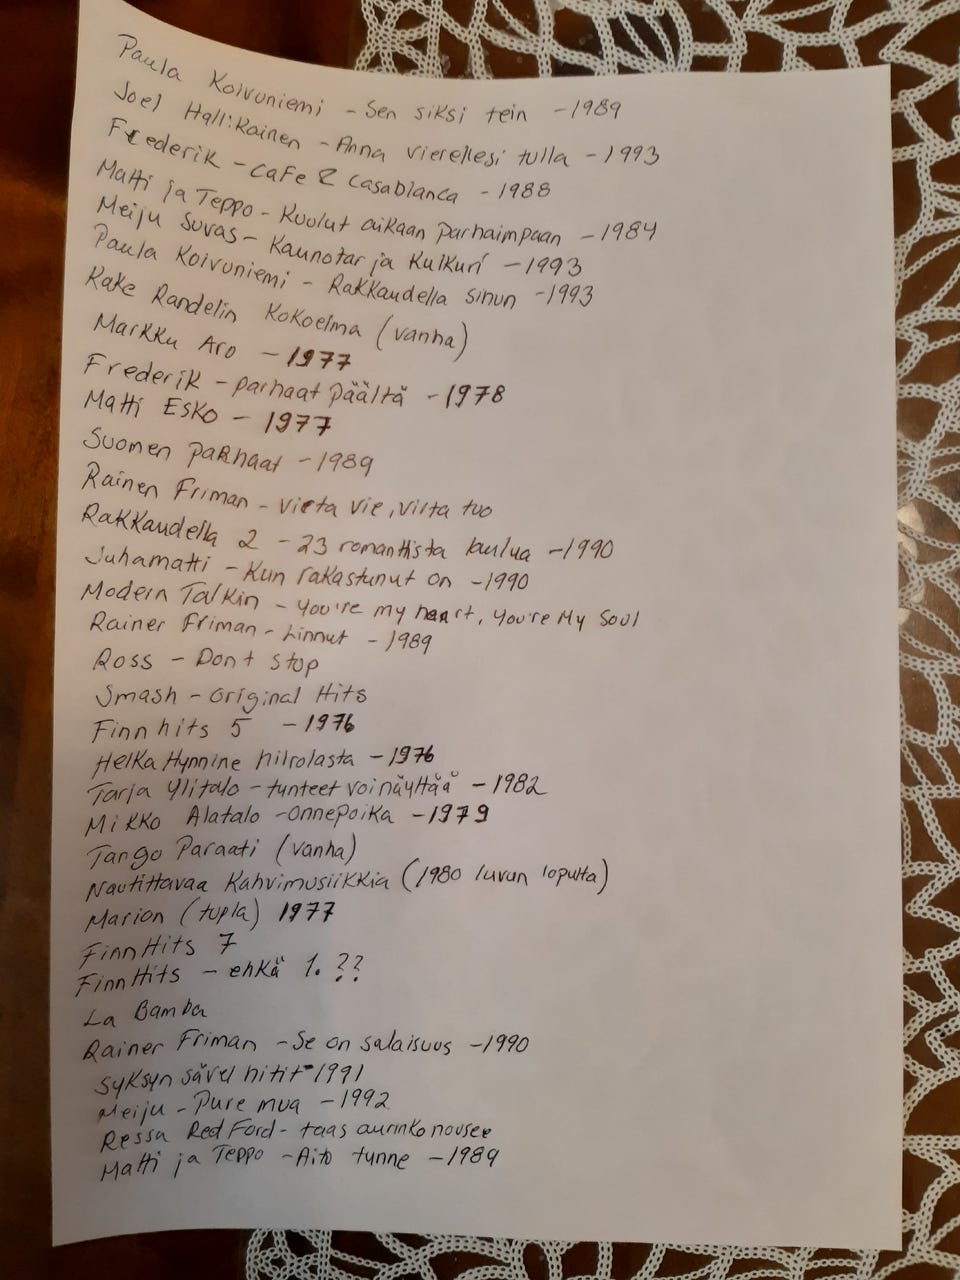 Paula Koivuniemi - Sen siksi tein - 1989
Joel Hallikainen - Anna vierellesi tulla - 1993
Frederik - CaFe & Casablanca - 1988
Matti ja Teppo - Kuulut aikaan parhaimpaan - 1984
Meiju Suvas - Kaunotar ja Kulkuri - 1993
Paula Koivuniemi - Rakkaudella sinun - 1993
Kake Randelin Kokoelma (vanha)
Markku Aro - 1977
Frederik - parhaat päältä - 1978
Matti Esko - 1977
Suomen parhaat - 1989
Rainen Friman - Virta vie, Virta tuo
Rakkaudella 2 - 23 romanttista laulua - 1990
Juhamatti - Kun rakastunut on - 1990
Modern Talkin - you're my heart, you're My Soul
Rainer Friman - Linnut - 1989
Ross - Don't stop
Smash - original Hits
Finnhits 5 - 1976
Helka Hynnine hilrolasta - 1976
Tarja Ylitalo - tunteet voi näyttää - 1982
Mikko Alatalo - onnepoika - 1979
Tango Paraati (vanha)
Nautittavaa Kahvimusiikkia (1980 luvun loputta)
Marion (tupla) 1977
FinnHits 7
FinnHits - ehkä 1. ??
La Bamba
Rainer Friman - Se on salaisuus - 1990
Syksyn sävel hitit - 1991
Meiju - Pure mua - 1992
Ressa Red Ford - taas aurinko nousee
Matti ja Teppo - Aito tunne - 1989